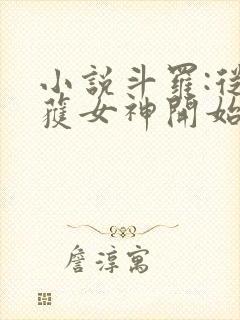 小說斗羅:從
獲女神開始
詹淳寓